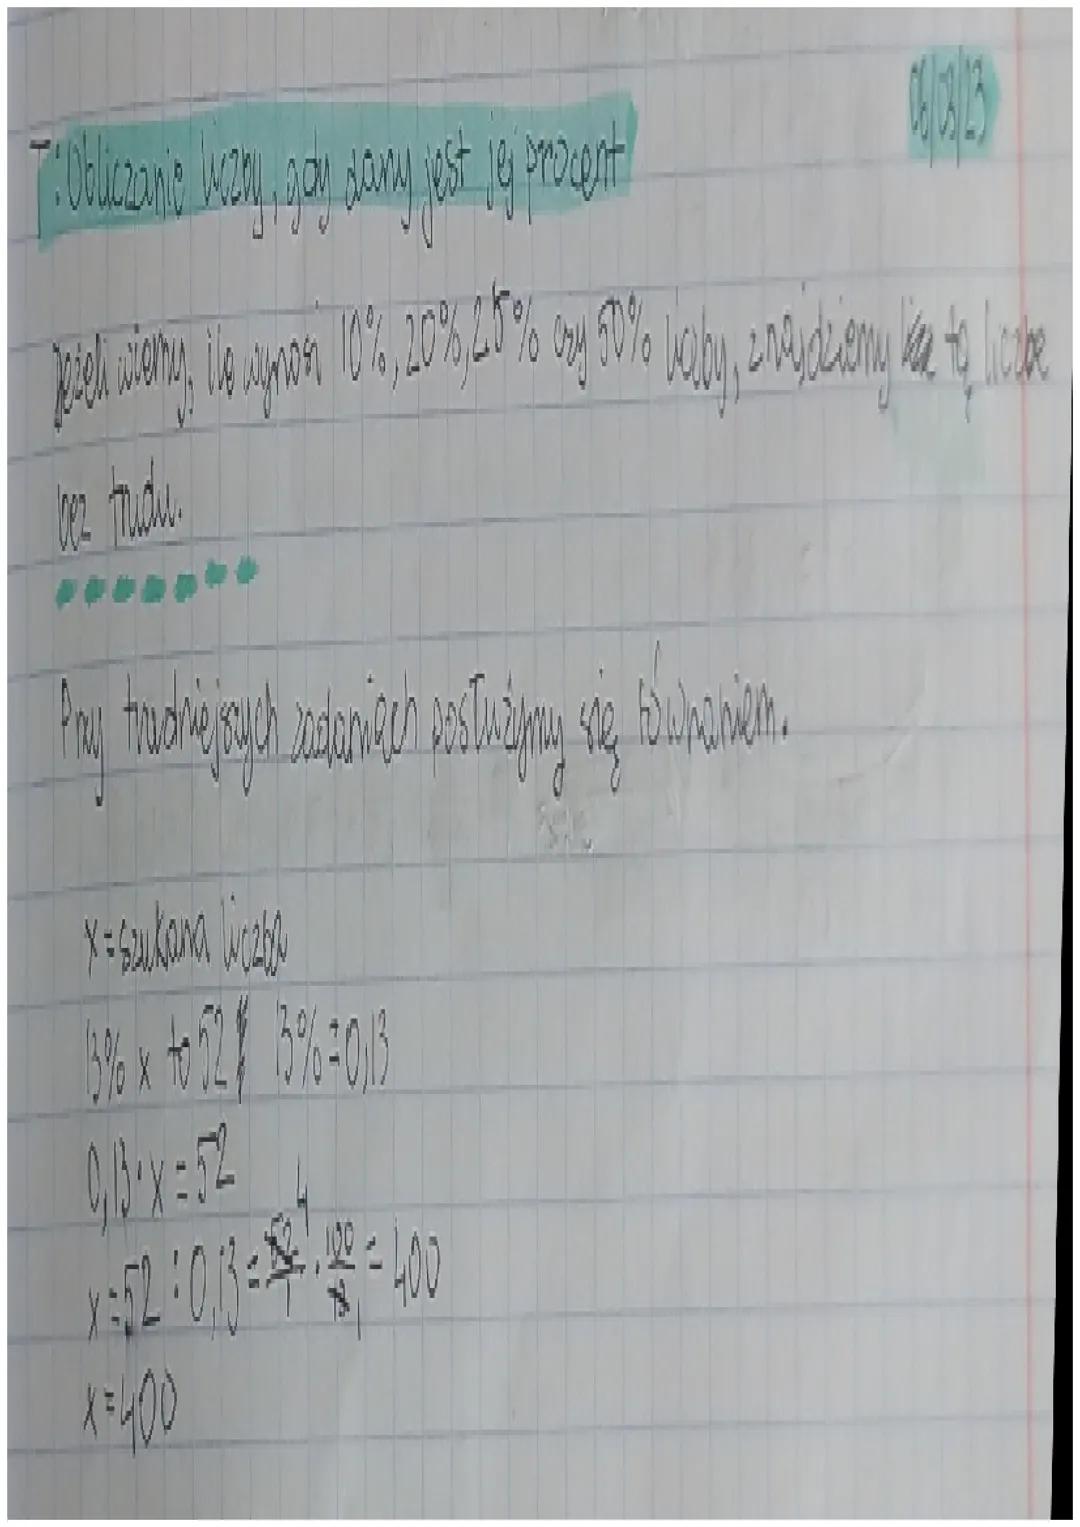 06/03/23
T: Obliczanie liczby, gdy dany jest jej procent
Jeżeli wiemy, ile wynosi 10%, 20%, 25% czy 50% liczby, znajdziemy tę liczbę
bez trudu.
Przy trudniejszych zadaniach posłużymy się równaniem.
x = szukana liczba
13% x to 52 13% = 0,13
0,13 · x = 52
x = 52 : 0,13 = 52/1 4 · 100/13 1 = 400
x = 400